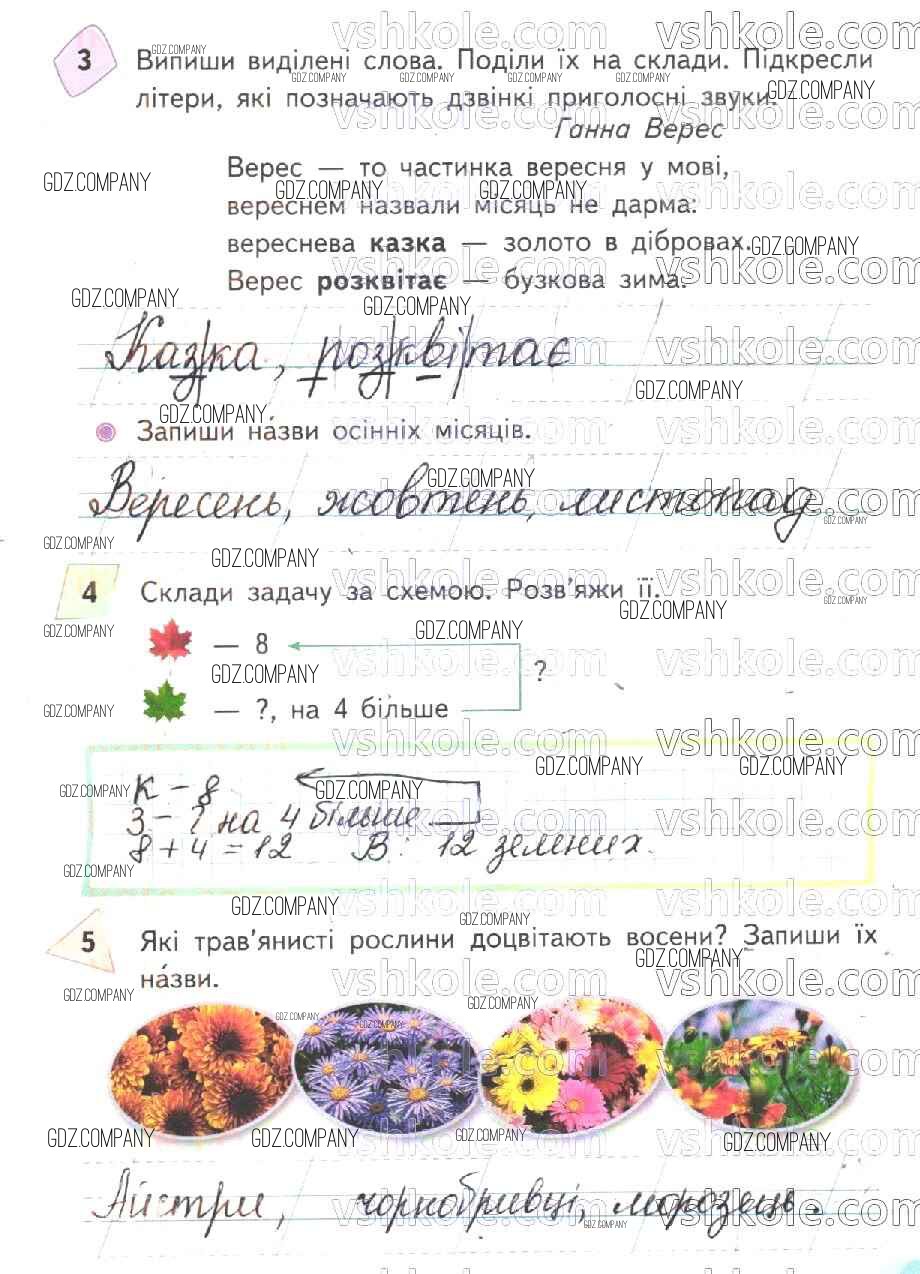 3 Випиши виділені слова. Поділи їх на склади. Підкресли
літери, які позначають дзвінкі приголосні звуки.
Ганна Верес
Верес — то частинка вересня у мові,
вереснем назвали місяць не дарма:
вереснева казка — золото в дібровах.
Верес розквітає — бузкова зима.
Каз/ка, роз/кві/тає
Запиши на́зви осінніх місяців.
Вересень, жовтень, листопад
4 Склади задачу за схемою. Розв'яжи її.
— 8
?
— ?, на 4 більше
К – 8
З – ? на 4 більше
8 + 4 = 12 В: 12 зелених.
5 Які трав'янисті рослини доцвітають восени? Запиши їх
на́зви.
Айстри, чорнобривці, морозець.
vshkole.com
GDZ.COMPANY